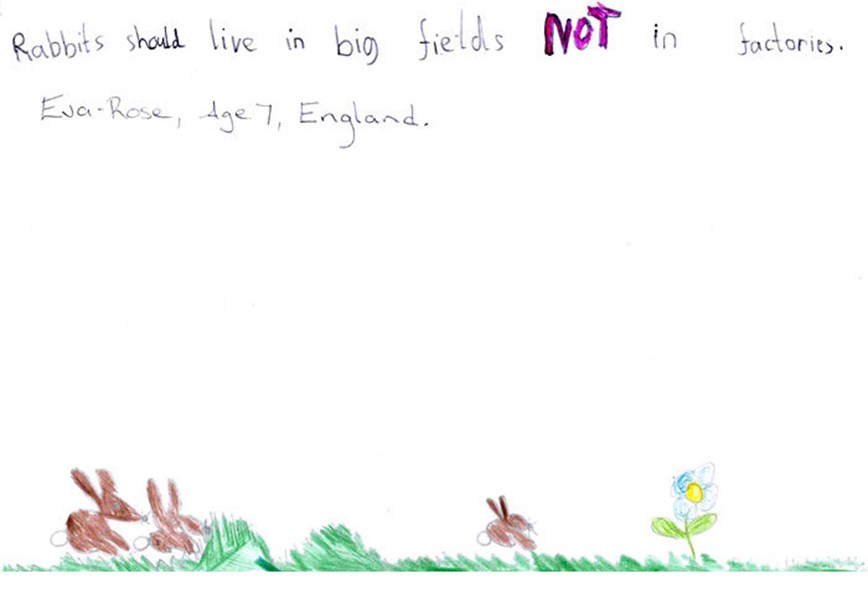 Rabbits should live in big fields NOT in factories.
Eva-Rose, Age 7, England.